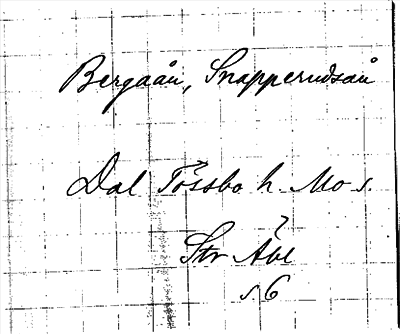 Bergaån, Snapperudsån
Dal Tössbo h. Mo s.
Str Åbl
s 6